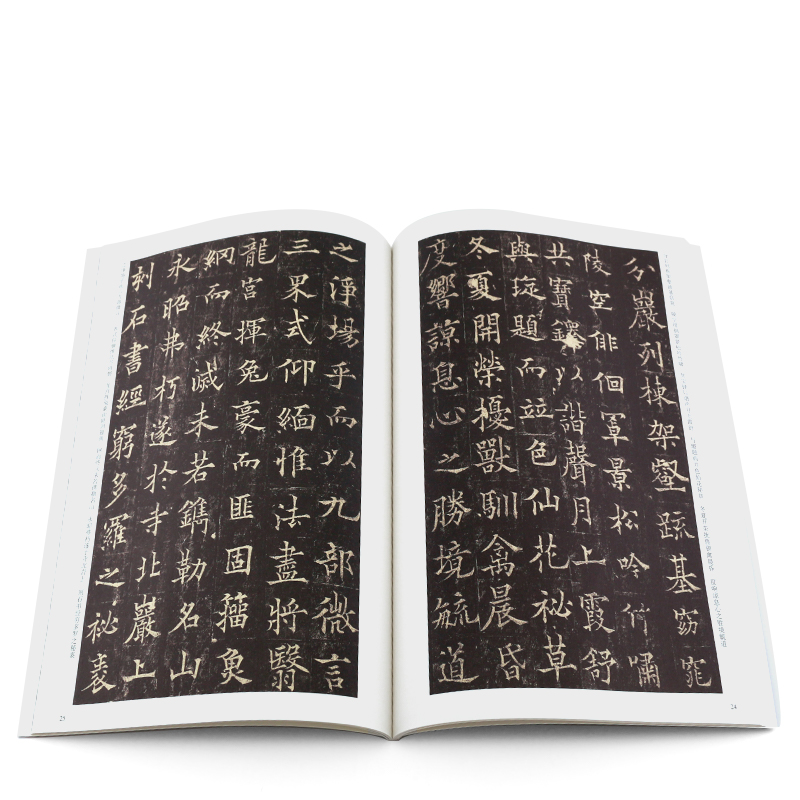 分巖列棟架壑疏基窈窕
陵空俳佪罩景松吟竹嘯
共寶鐸以諧聲月上霞舒
與琁題而竝色仙花祕草
冬夏開榮擾獸馴禽晨昏
度響諒息心之勝境毓道
24
之淨場乎而以九部微言
三果式仰緬惟法盡將翳
龍宮揮兔豪而匪固籀魚
網而終滅未若鐫勒名山
永昭弗朽遂於寺北巖上
刻石書經窮多羅之祕袠
25